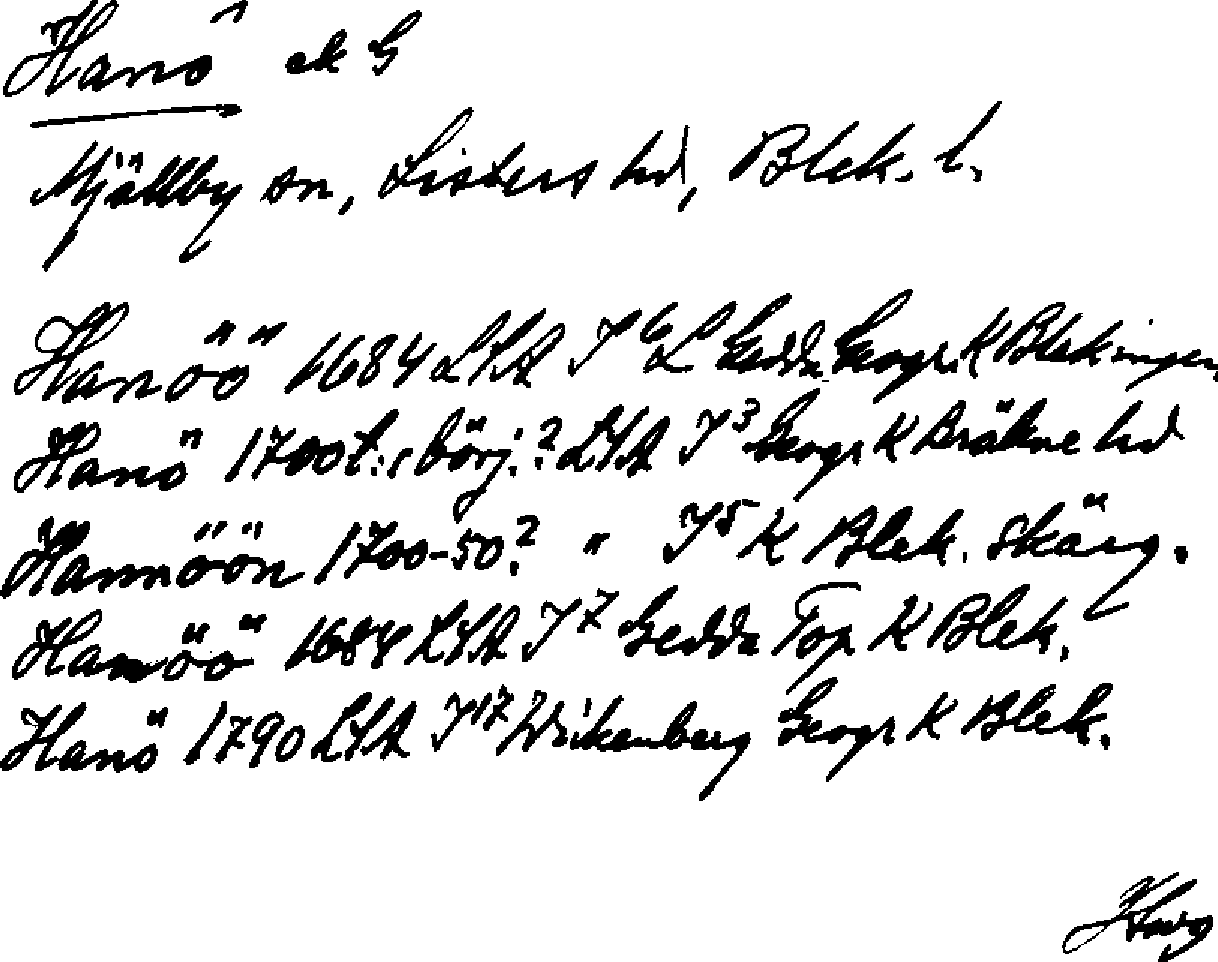 Hanö ek G
Mjällby sn, Listers hd, Blek. l.
Hanöö 1684 LSA I 6 L Gedda Geogr K Blekingen
Hanö 1700t:s börj.? LSA I 3 Geogr K Bräkne hd
Hannöön 1700-50? " I 5 K Blek. skärg.
Hanöö 1684 LSA I 7 Gedda Top K Blek.
Hanö 1790 LSA I 17 Wikenberg Geogr K Blek.